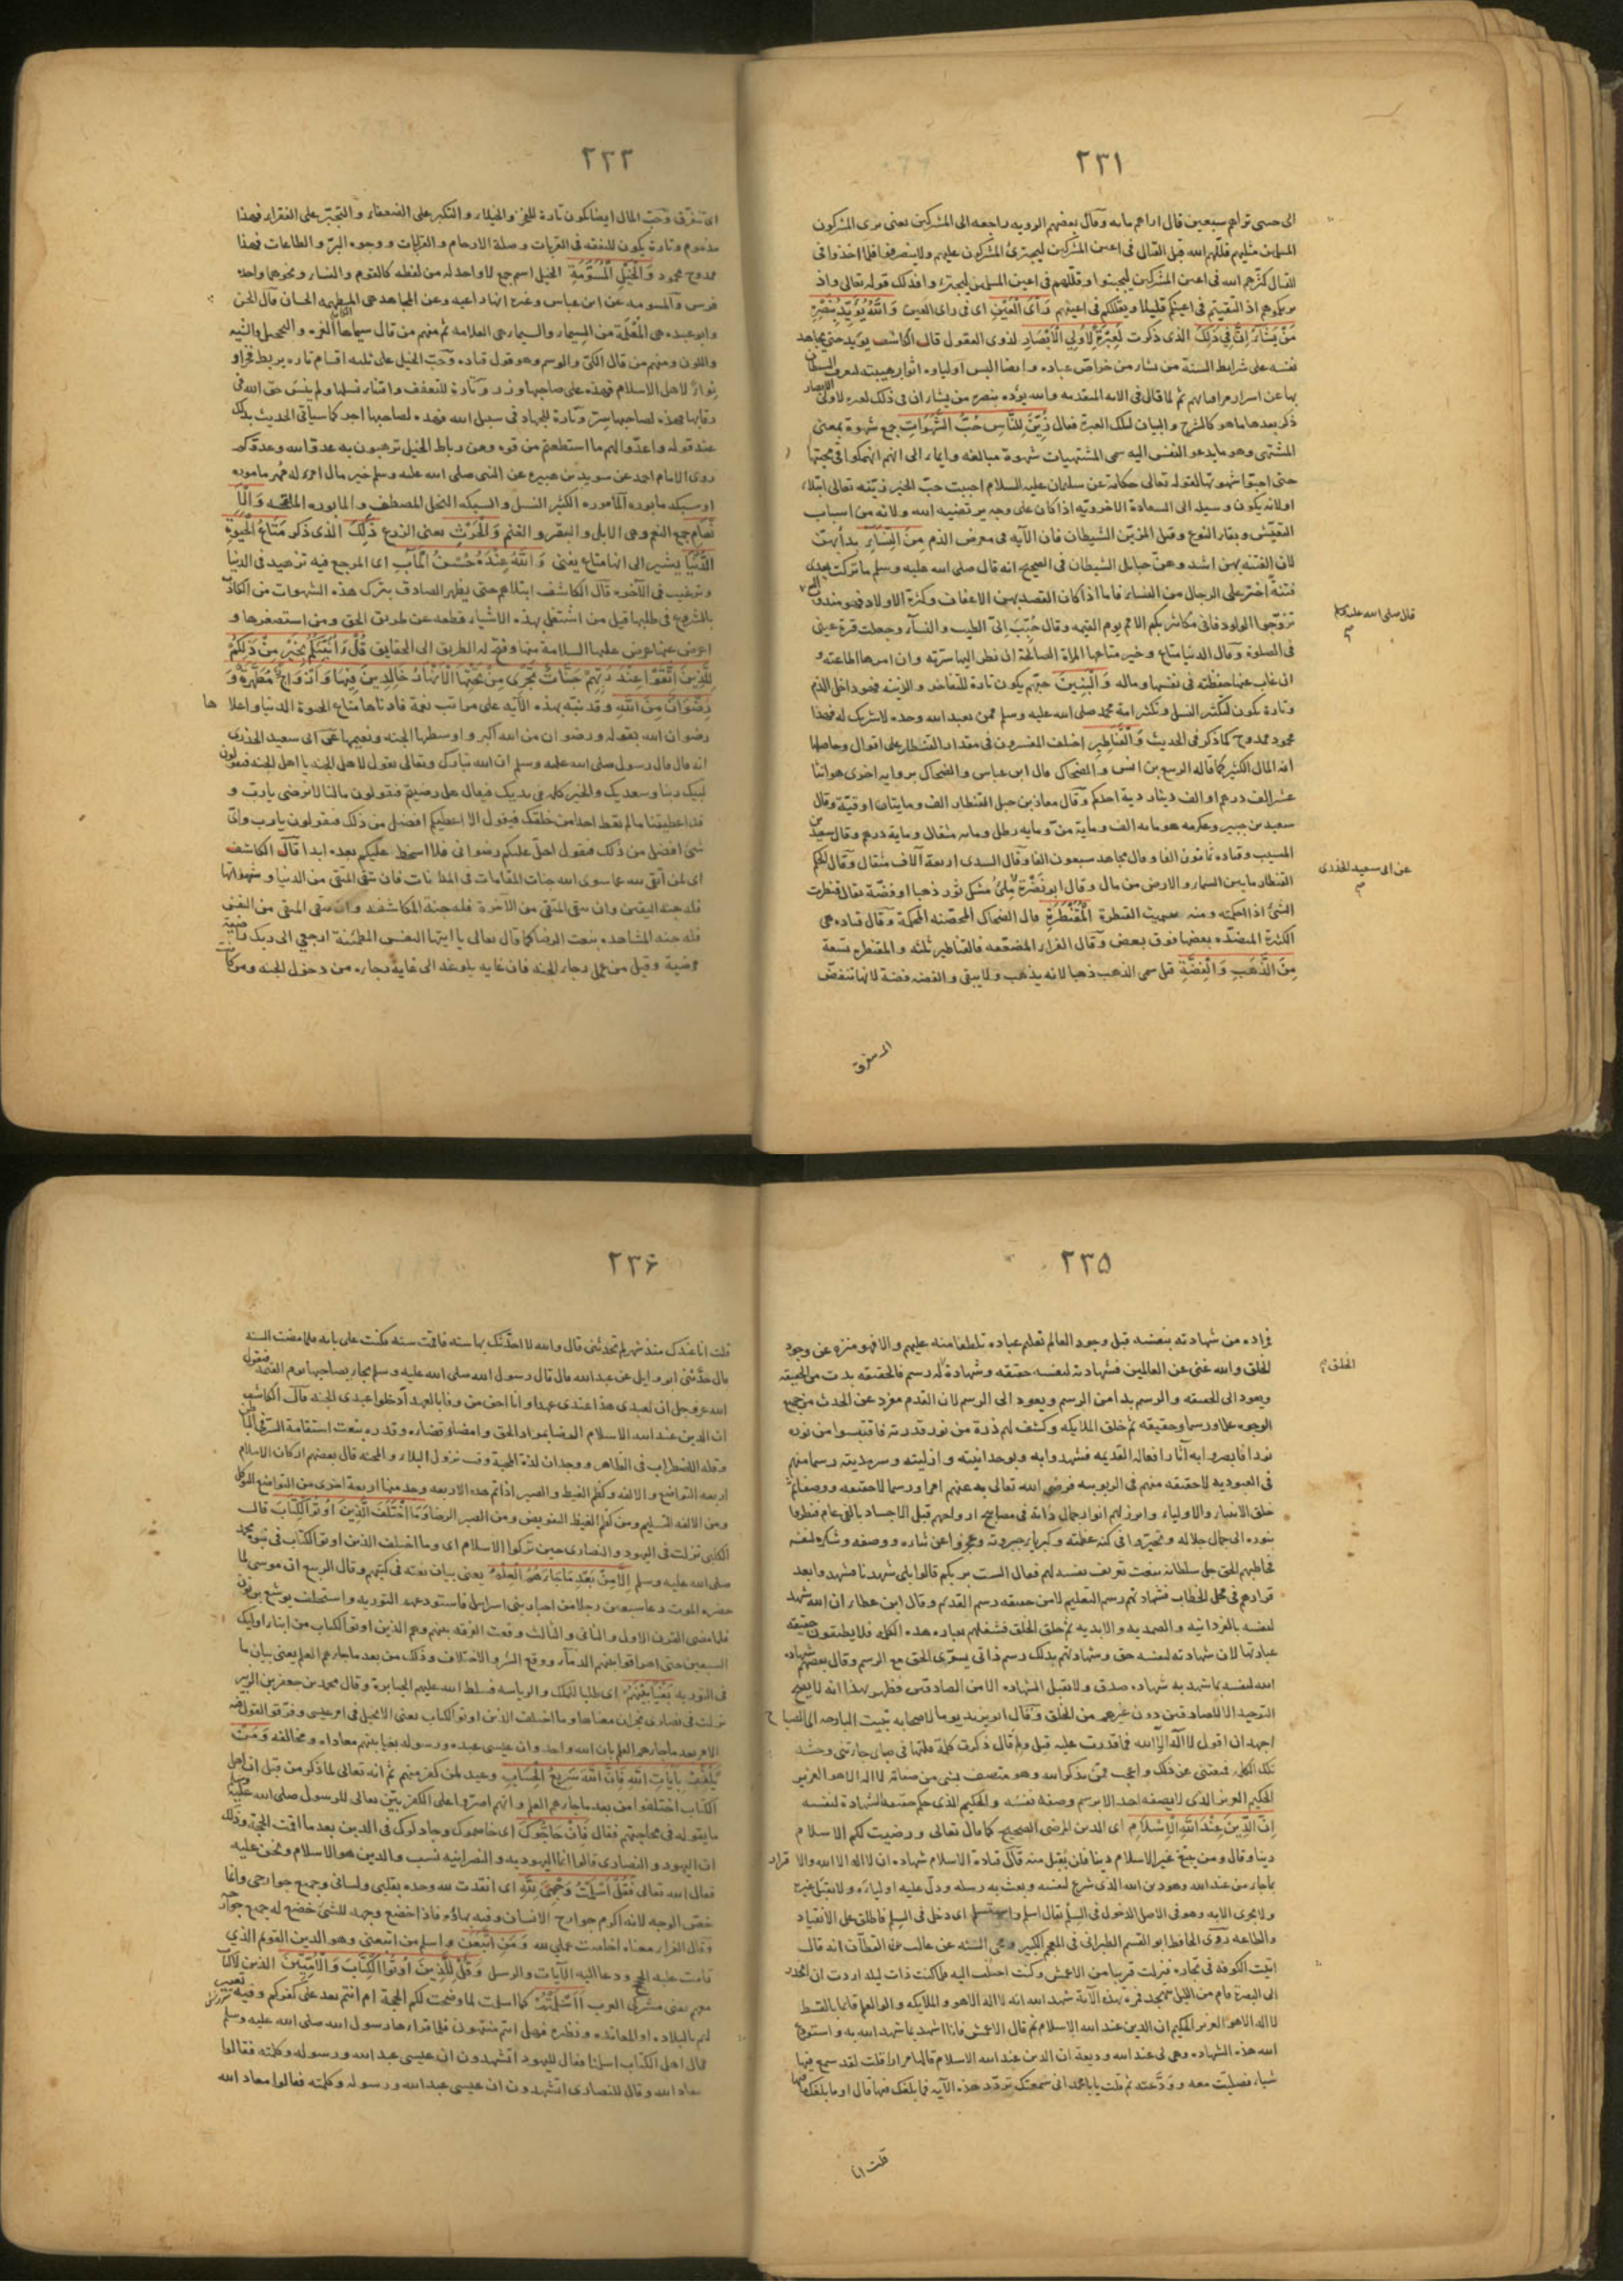 ٢٣١
الى حسى تراهم سبعين قال اراهم مايه وقال بعضهم الرويه راجعه الى المشركين يعنى يرى المشركون
المسلمين مثليهم قللهم الله قبل القتال فى اعين المشركين ليجترئ المشركون عليهم ولا ينصرفوا فلما اخذوا فى
القتال كثرهم الله فى اعين المشركين ليجبنوا وقللهم فى اعين المسلمين ليجترءوا فذلك قوله تعالى واذ
يريكموهم اذ التقيتم فى اعينكم قليلا ويقللكم فى اعينهم رَأْىَ الْعَيْنِ اى فى راى العين وَاللهُ يُؤَيِّدُ بِنَصْرِهِ
مَنْ يَشَاءُ اِنَّ فِى ذَلِكَ الذى ذكرت لَعِبْرَةً لِاُولِى الْاَبْصَارِ لذوى العقول قال الكاشف يؤيد حتى يجاهد
نفسه على شرايط السنة من يشاء من خواص عباده وايضا البس اولياءه انوار هيبته
بها عن اسرار ثم لما قال فى الايه المتقدمه والله يؤيد بنصره من يشاء ان فى ذلك لعبرة لاولى الابصار
ذكر بعدها ما هو كالشرح والبيان لتلك العبرة فقال زُيِّنَ لِلنَّاسِ حُبُّ الشَّهَوَاتِ جمع شهوة بمعنى
المشتهى وهو ما يدعو النفس اليه سمى المشتهيات شهوة مبالغه وايماء الى انهم انهمكوا فى محبتها
حتى احبوا شهوتها لقوله تعالى حكاية عن سليمان عليه السلام احببت حب الخير زينه تعالى ابتلاء
اولانه يكون وسيله الى السعادة الاخرويه اذا كان على وجه يرتضيه الله ولانه من اسباب
التعيش وبقاء النوع وقيل المزين الشيطان فان الآيه فى معرض الذم مِنَ النِّسَاءِ بدأ بهن
لان الفتنه بهن اشد وهن حبايل الشيطان فى الصحيح انه قال صلى الله عليه وسلم ما تركت بعدى
فتنة اضر على الرجال من النساء فاما اذا كان القصد بهن الاعفاف وكثرة الاولاد فهو مندوب
تزوجوا الولود فانى مكاثر بكم الامم يوم القيمه وقال حُبِّبَ اِلَىَّ الطيب والنساء وجعلت قرة عينى
فى الصلوة وقال الدنيا متاع وخير متاعها المراة الصالحة ان نظر اليها سرته وان امرها اطاعته و
ان غاب عنها حفظته فى نفسها وماله وَالْبَنِينَ حبهم يكون تارة للتفاخر والزينه فهو داخل الذم
وتارة يكون لتكثير النسل وتكثير امة محمد صلى الله عليه وسلم ممن يعبد الله وحده لا شريك له فهذا
محمود ممدوح كما ذكر فى الحديث وَالْقَنَاطِيرِ اختلف المفسرون فى مقدار القنطار على اقوال وحاصلها
انه المال الكثير كما قاله الربيع بن انس والضحاك قال ابن عباس والضحاك بروايه اخرى هو اثنا
عشر الف درهم او الف دينار دية احدكم وقال معاذ بن جبل القنطار الف ومايتان اوقية وقال
سعيد بن جبير وعكرمه هو مايه الف وماية منّ ومايه رطل ومايه مثقال وماية درهم وقال سعيد بن
المسيب وقتاده ثمانون الفا وقال مجاهد سبعون الفا وقال السدى اربعة آلاف مثقال وقال الحكم
القنطار ما بين السماء والارض من مال وقال ابو نضرة ملئ مسك ثور ذهبا او فضة يقال قنطرت
الشئ اذا احكمته ومنه سميت القنطرة الْمُقَنْطَرَةِ قال الضحاك المحصنه المحكمة وقال قتاده هى
الكثيرة المنضده بعضها فوق بعض وقال الفراء المضعفه فالقناطير ثلثه والمقنطره تسعة
مِنَ الذَّهَبِ وَالْفِضَّةِ قيل سمى الذهب ذهبا لانه يذهب ولا يبقى والفضه فضة لانها تنفض
قال صلى الله عليه وسلم
عن ابى سعيد الخدرى
اى تتفرق
٢٣٢
اى تتفرق وحب المال ايضا يكون تارة للفخر والخيلاء والتكبر على الضعفاء والتجبر على الفقراء فهذا
مذموم وتارة يكون للنفقه فى القربات وصلة الارحام والقرابات ووجوه البر والطاعات فهذا
ممدوح محمود وَالْخَيْلِ الْمُسَوَّمَةِ الخيل اسم جمع لا واحد له من لفظه كالقوم والنساء ونحوهما واحده
فرس والمسومه عن ابن عباس وغيره انها راعيه وعن مجاهد هى المطهمه الحسان قال الحسن
وابو عبيده هى المُعلَمة من السيماء والسيما هى العلامه ثم منهم من قال سيماها الغره والتحجيل والشيه
واللون ومنهم من قال الكىّ والوسم وهو قول قتاده وحب الخيل على ثلثه اقسام تاره يربط فخرا و
نواءً لاهل الاسلام فهذه على صاحبها وزر وتارة للتعفف واقتناء نسلها ولم ينس حق الله فى
رقابها فهذه لصاحبها ستر وتارة للجهاد فى سبيل الله فهذه لصاحبها اجر كما سياتى الحديث بذلك
عند قوله واعدوا لهم ما استطعتم من قوه ومن رباط الخيل ترهبون به عدو الله وعدوكم
روى الامام احمد عن سويد بن هبيرة عن النبى صلى الله عليه وسلم خير مال امرء له مهره ماموره
او سكه مابوره الماموره الكثير النسل والسكه النخل المصطف والمابوره الملقحه وَالْاَ
نْعَامِ جمع النعم وهى الابل والبقر والغنم وَالْحَرْثِ يعنى الزرع ذَلِكَ الذى ذكر مَتَاعُ الْحَيَوةِ
الدُّنْيَا يشير الى انها متاع يفنى وَاللهُ عِنْدَهُ حُسْنُ الْمَآبِ اى المرجع فيه تزهيد فى الدنيا
وترغيب فى الآخره قال الكاشف ابتلاهم حتى يظهر الصادق بترك هذه الشهوات من الكاذب
بالشروع فى طلبها قيل من اشتغل بهذه الاشياء قطعه عن طريق الحق ومن استصغرها و
اعرض عنها عوض عليها السلامة منها وفتح له الطريق الى الحقايق قُلْ أَؤُنَبِّئُكُمْ بِخَيْرٍ مِنْ ذَلِكُمْ
لِلَّذِينَ اتَّقَوْا عِنْدَ رَبِّهِمْ جَنَّاتٌ تَجْرِى مِنْ تَحْتِهَا الْاَنْهَارُ خَالِدِينَ فِيهَا وَاَزْوَاجٌ مُطَهَّرَةٌ وَ
رِضْوَانٌ مِنَ اللهِ وقد نبه بهذه الآيه على مراتب نعمه فادناها متاع الحيوة الدنيا واعلاها
رضوان الله بقوله ورضوان من الله اكبر واوسطها الجنه ونعيمها عن ابى سعيد الخدرى
انه قال قال رسول صلى الله عليه وسلم ان الله تبارك وتعالى يقول لاهل الجنه يا اهل الجنه فيقولون
لبيك ربنا وسعديك والخير كله فى يديك فيقال هل رضيتم فيقولون ما لنا لا نرضى يا رب و
قد اعطيتنا ما لم تعط احدا من خلقك فيقول الا اعطيكم افضل من ذلك فيقولون يا رب واىّ
شئ افضل من ذلك فيقول احل عليكم رضوانى فلا اسخط عليكم بعده ابدا قال الكاشف
اى لمن اتقى الله عما سوى الله جنات المقامات فان بقى المتقى من الدنيا وشهواتها
فله جنه اليقين وان بقى المتقى من الاخرة فله جنة المكاشفه وان بقى المتقى من النفس
فله جنه المشاهده بنعت الرضا كما قال تعالى يا ايتها النفس المطمئنة ارجعى الى ربك راضية
مرضية وقيل من عمل رجاء الجنه فان غايه بلوغه الى غاية رجاءه من دخول الجنه ومن كانت
٢٣٥
من شهادته بنفسه قبل وجود العالم تعليم عباده تلطفا منه عليهم والا فهو منزه عن وجود
الخلق والله غنى عن العالمين فشهادته لنفسه حقيقه وشهادة له رسم فالحقيقه بدت من الحقيقه
ويعود الى الحقيقه والرسم بدا من الرسم ويعود الى الرسم لان القدم مفرد عن الحدث من جميع
الوجوه علما ورسما وحقيقه ثم خلق الملايكه وكشف لهم ذرة من نور قدرته فاقتبسوا من نوره
نورا فابصروا به آثار افعاله القديمه فشهدوا به وبوحدانيته وازليته وسرمديته رسما منهم
فى العبودية لا حقيقه منهم فى الربوبيه فرضى الله تعالى به عنهم امرا ورسما لا حقيقه ووصفا ثم
خلق الانبياء والاولياء وابرز لهم انوار جمال ذاته فى مصابيح ارواحهم قبل الاجساد بالفى عام فنظروا
بنوره الى جمال جلاله وتحيروا فى كنه عظمته وكبرياء جبروته وعجزوا عن ثناءه ووصفه وشكره لنفسه
فخاطبهم الحق جل سلطانه بنعت تعريف نفسه لهم فقال الست بربكم قالوا بلى شهدنا فشهدوا بعد
قرارهم فى محل الخطاب فشهادتهم رسم التعليم لا من حقيقه رسم القدم وقال ابن عطاء ان الله شهد
لنفسه بالفردانيه والصمديه والابديه ثم خلق الخلق فشغلهم بعباره هذه الكلمه فلا يطيقون حقيقه
عبادتها لان شهادته لنفسه حق وشهادتهم بذلك رسم فانى يستوى الحق مع الرسم وقال بعضهم شهادة
الله لنفسه بما شهد به شهاده صدق ولا تقبل الشهاده الا من الصادقين فظهر بهذا انه لا يصح
التوحيد الا للصادقين دون غيرهم من الخلق وقال ابو يزيد يوما لاصحابه بقيت البارحه الى الصباح
اجهد ان اقول لا اله الا الله فما قدرت عليه قيل ولم قال ذكرت كلمة قلتها فى صباى جاءتنى وحشه
تلك الكلمه فمنعتنى عن ذلك واعجب ممن يذكر الله وهو متصف بشئ من صفاته لا اله الا هو العزيز
الحكيم العزيز الذى لا يصفه احد الا برسم وصفه نفسه والحكيم الذى حكم حقيقه الشهادة لنفسه
اِنَّ الدِّينَ عِنْدَ اللهِ الْاِسْلَامِ اى الدين المرضى الصحيح كما قال تعالى ورضيت لكم الاسلام
دينا وقال ومن يبتغ غير الاسلام دينا فلن يقبل منه قال قتادة الاسلام شهاده ان لا اله الا الله والاقرار
بما جاء من عند الله وهو دين الله الذى شرع لنفسه وبعث به رسله ودل عليه اولياءه ولا يقبل غيره
ولا يجزى الا به وهو فى الاصل الدخول فى السلم يقال اسلم واستسلم اى دخل فى السلم فاطلق على الانقياد
والطاعه روى الحافظ ابو القسم الطبرانى فى المعجم الكبير ومحى السنه عن غالب بن القطان انه قال
اتيت الكوفه فى تجاره فنزلت قريبا من الاعمش وكنت اختلف اليه فلما كنت ذات ليله اردت ان انحدر
الى البصره قام من الليل يتهجد فمر بهذه الآية شهد الله انه لا اله الا هو والملايكه واولوا العلم قايما بالقسط
لا اله الا هو العزيز الحكيم ان الدين عند الله الاسلام ثم قال الاعمش فانا اشهد بما شهد الله به واستودع
الله هذه الشهاده وهى لى عند الله وديعة ان الدين عند الله الاسلام قالها مرارا قلت لقد سمع فيها
شيئا فصليت معه وودعته ثم قلت يا با محمد انى سمعتك تردد هذه الآيه فما بلغك فيها قال او ما بلغك فيها
الخلق
قلت انا
٢٣٦
قلت انا عندك منذ شهر لم تحدثنى قال والله لا احدثك بها سنه فاقمت سنه مكثت على بابه فلما مضت السنه
قال حدثنى ابو وايل عن عبد الله قال قال رسول الله صلى الله عليه وسلم يجاء بصاحبها يوم القيمه فيقول
الله عز وجل ان لعبدى هذا عندى عهدا وانا احق من وفا بالعهد ادخلوا عبدى الجنه قال الكاشف
ان الدين عند الله الاسلام الرضا بمراد الحق وامضاء قضاءه وقدره بنعت استقامة السر فى الباطن
وقله الاضطراب فى الظاهر ووجدان لذة المحبة وقت نزول البلاء والمحنه قال بعضهم اركان الاسلام
اربعه التواضع والالفه وكظم الغيظ والصبر اذا تم هذه الاربعه وجد منها اربعة اخرى من التواضع التوكل
ومن الالفه التسليم ومن كظم الغيظ التفويض ومن الصبر الرضا وَمَا اخْتَلَفَ الَّذِينَ اُوتُوا الْكِتَابَ قال
الكلبى نزلت فى اليهود والنصارى حين تركوا الاسلام اى وما اختلف الذين اوتوا الكتاب فى نبوة محمد
صلى الله عليه وسلم اِلَّا مِنْ بَعْدِ مَا جَاءَهُمُ الْعِلْمُ يعنى بيان نعته فى كتبهم وقال الربيع ان موسى لما
حضره الموت دعا سبعين رجلا من احبار بنى اسرائيل فاستودعهم التوريه واستخلف يوشع بن نون
فلما مضى القرن الاول والثانى والثالث وقعت الفرقه بينهم وهم الذين اوتوا الكتاب من ابناء اوليك
السبعين حتى اهراقوا بينهم الدماء ووقع الشر والاختلاف وذلك من بعد ما جاءهم العلم يعنى بيان ما
فى التوريه بَغْيًا بَيْنَهُمْ اى طلبا للملك والرياسه فسلط الله عليهم الجبابرة وقال محمد بن جعفر بن الزبير
نزلت فى نصارى نجران معناها وما اختلف الذين اوتوا الكتاب يعنى الانجيل فى امر عيسى وفرقوا القول فيه
الا من بعد ما جاءهم العلم بان الله واحد وان عيسى عبده ورسوله بغيا بينهم معاداه ومخالفه وَمَنْ
يَكْفُرْ بِآيَاتِ اللهِ فَاِنَّ اللهَ سَرِيعُ الْحِسَابِ وعيد لمن كفر منهم ثم انه تعالى لما ذكر من قبل ان اهل
الكتاب اختلفوا من بعد ما جاءهم العلم وانهم اصروا على الكفر بين تعالى للرسول صلى الله عليه وسلم
ما يقوله فى محاجتهم فقال فَاِنْ حَاجُّوكَ اى خاصموك وجادلوك فى الدين بعد ما اقمت الحجه وذلك
ان اليهود والنصارى قالوا انما اليهوديه والنصرانيه نسب والدين هو الاسلام ونحن عليه
فقال الله تعالى فَقُلْ اَسْلَمْتُ وَجْهِىَ لِلَّهِ اى انقدت لله وحده بقلبى ولسانى وجميع جوارحى وانما
خص الوجه لانه اكرم جوارح الانسان وفيه بهاؤه فاذا خضع وجهه للشئ خضع له جميع جوارحه
وقال الفراء معناه اخلصت عملى لله وَمَنِ اتَّبَعَنِ واسلم من اتبعنى وهو الدين القويم الذى
قامت عليه الحجج ودعا اليه الآيات والرسل وَقُلْ لِلَّذِينَ اُوتُوا الْكِتَابَ وَالْاُمِّيِّينَ الذين لا كتاب
معهم يعنى مشركى العرب أَأَسْلَمْتُمْ كما اسلمت لما وضحت لكم الحجة ام انتم بعد على كفركم وفيه تعيير
لهم بالبلاده او المعانده ونظيره فهل انتم منتهون فلما قراها رسول الله صلى الله عليه وسلم
قال اهل الكتاب اسلمنا فقال لليهود اتشهدون ان عيسى عبد الله ورسوله وكلمته فقالوا
معاذ الله وقال للنصارى اتشهدون ان عيسى عبد الله ورسوله وكلمته فقالوا معاذ الله